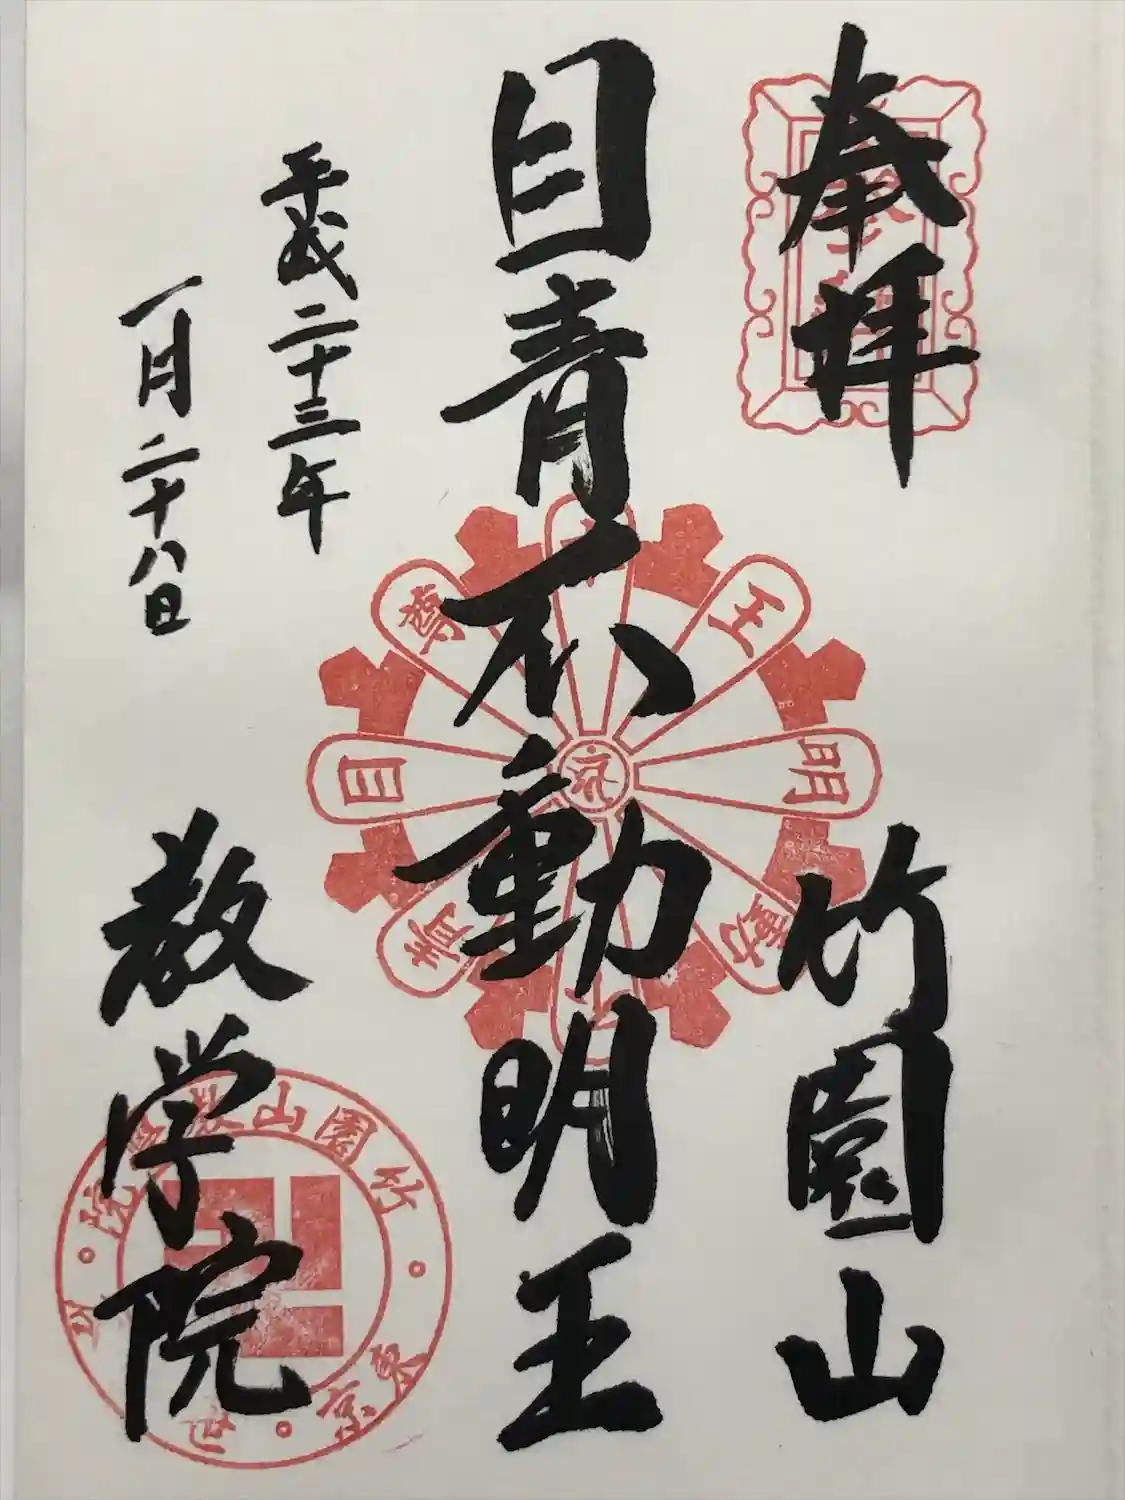 奉拝
竹園山
目青不動明王
平成二十三年
一月二十八日
教学院
王
明
動
青
目
尊
竹園山教學院
東京